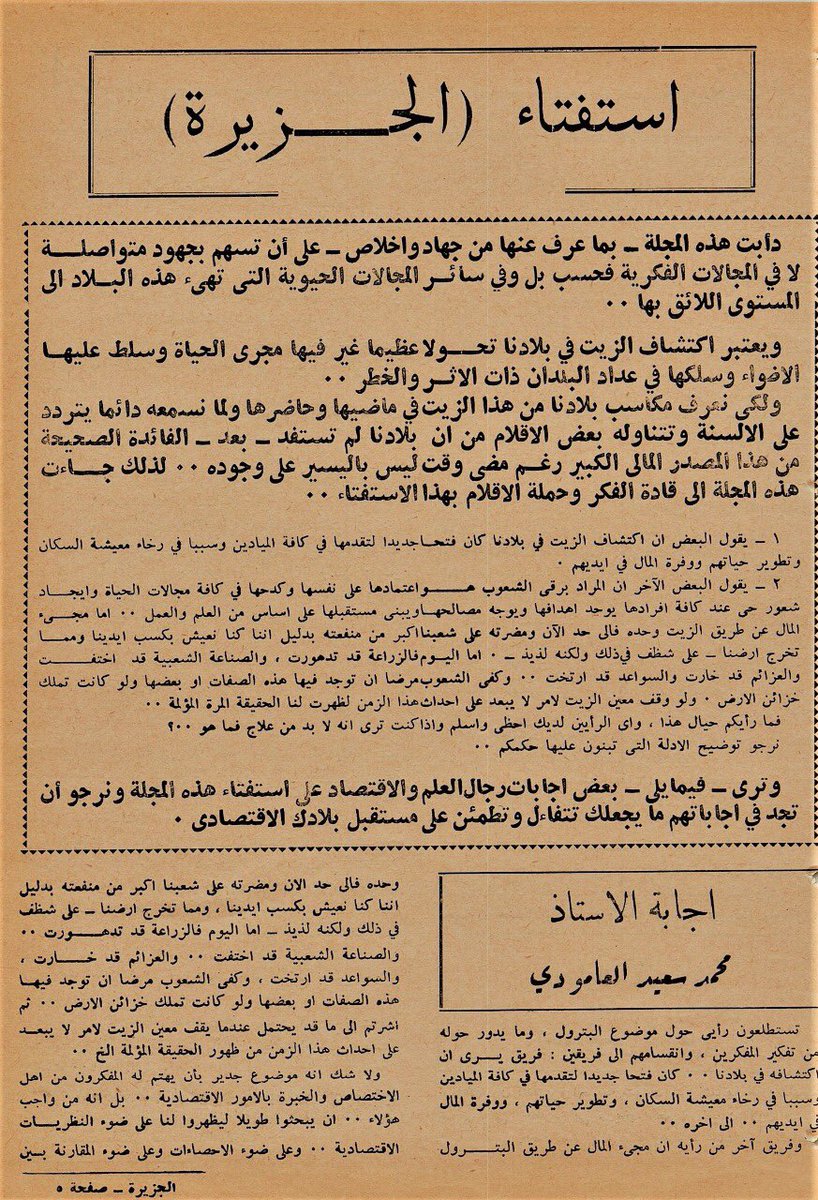 استفتاء (الجـــزيرة)
دأبت هذه المجلة ــ بما عرف عنها من جهاد واخلاص ــ على أن تسهم بجهود متواصلة
لا في المجالات الفكرية فحسب بل وفي سائر المجالات الحيوية التى تهىء هذه البلاد الى
المستوى اللائق بها ٠٠
ويعتبر اكتشاف الزيت في بلادنا تحولا عظيما غير فيها مجرى الحياة وسلط عليها
الاضواء وسلكها في عداد البلدان ذات الاثر والخطر ٠٠
ولكى نعرف مكاسب بلادنا من هذا الزيت في ماضيها وحاضرها ولما نسمعه دائما يتردد
على الالسنة وتتناوله بعض الاقلام من ان بلادنا لم تستفد ــ بعد ــ الفائدة الصحيحة
من هذا المصدر المالى الكبير رغم مضى وقت ليس باليسير على وجوده ٠٠ لذلك جاءت
هذه المجلة الى قادة الفكر وحملة الاقلام بهذا الاستفتاء ٠٠
١ ــ يقول البعض ان اكتشاف الزيت في بلادنا كان فتحا جديدا لتقدمها في كافة الميادين وسببا في رخاء معيشة السكان
وتطوير حياتهم ووفرة المال في ايديهم ٠
٢ ــ يقول البعض الآخر ان المراد برقى الشعوب هو اعتمادها على نفسها وكدحها في كافة مجالات الحياة وايجاد
شعور حى عند كافة افرادها يوحد اهدافها ويوجه مصالحها ويبنى مستقبلها على اساس من العلم والعمل ٠٠ اما مجىء
المال عن طريق الزيت وحده فالى حد الآن ومضرته على شعبنا اكبر من منفعته بدليل اننا كنا نعيش بكسب ايدينا ومما
تخرج ارضنا ــ على شظف في ذلك ولكنه لذيذ ــ ٠ اما اليوم فالزراعة قد تدهورت ، والصناعة الشعبية قد اختفت
والعزائم قد خارت والسواعد قد ارتخت ٠٠ وكفى الشعوب مرضا ان توجد فيها هذه الصفات او بعضها ولو كانت تملك
خزائن الارض ٠ ولو وقف معين الزيت لامر لا يبعد على احداث هذا الزمن لظهرت لنا الحقيقة المرة المؤلمة ٠٠
فما رأيكم حيال هذا ، واى الرأيين لديك احظى واسلم واذا كنت ترى انه لا بد من علاج فما هو ٠٠؟
نرجو توضيح الادلة التى تبنون عليها حكمكم ٠٠
وترى ــ فيما يلى ــ بعض اجابات رجال العلم والاقتصاد على استفتاء هذه المجلة ونرجو أن
تجد في اجاباتهم ما يجعلك تتفاءل وتطمئن على مستقبل بلادك الاقتصادى ٠
اجابة الاستاذ
محمد سعيد العامودي
تستطلعون رأيى حول موضوع البترول ، وما يدور حوله
من تفكير المفكرين ، وانقسامهم الى فريقين : فريق يرى ان
اكتشافه في بلادنا ٠٠ كان فتحا جديدا لتقدمها في كافة الميادين
وسببا في رخاء معيشة السكان ، وتطوير حياتهم ، ووفرة المال
في ايديهم ٠٠ الى اخره ٠٠
وفريق آخر من رأيه ان مجىء المال عن طريق البترول
وحده فالى حد الان ومضرته على شعبنا اكبر من منفعته بدليل
اننا كنا نعيش بكسب ايدينا ، ومما تخرج ارضنا ــ على شظف
في ذلك ولكنه لذيذ ــ اما اليوم فالزراعة قد تدهورت ٠٠
والصناعة الشعبية قد اختفت ٠٠ والعزائم قد خارت ،
والسواعد قد ارتخت ، وكفى الشعوب مرضا ان توجد فيها
هذه الصفات او بعضها ولو كانت تملك خزائن الارض ٠٠ ثم
اشرتم الى ما قد يحتمل عندما يقف معين الزيت لامر لا يبعد
على احداث هذا الزمن من ظهور الحقيقة المؤلمة الخ ٠٠
ولا شك انه موضوع جدير بأن يهتم له المفكرون من اهل
الاختصاص والخبرة بالامور الاقتصادية ٠٠ بل انه من واجب
هؤلاء ٠٠ ان يبحثوا طويلا ليظهروا لنا على ضوء النظريات
الاقتصادية ٠٠ وعلى ضوء الاحصاءات وعلى ضوء المقارنة بين
الجزيرة ــ صفحة ٥